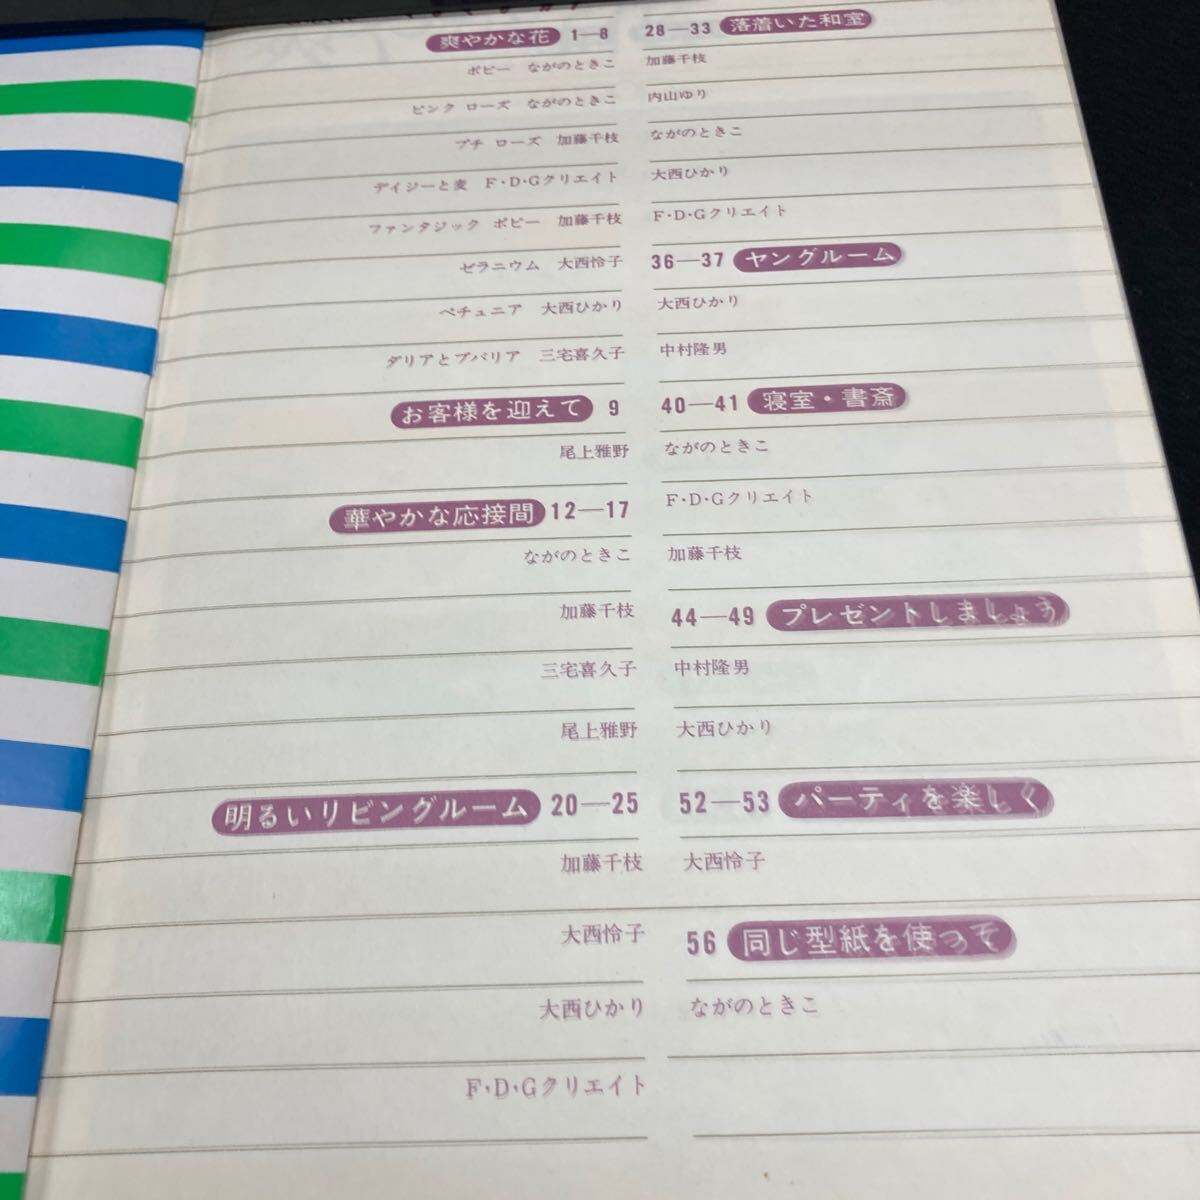 爽やかな花 1—8
ポピー ながのときこ
ピンク ローズ ながのときこ
プチ ローズ 加藤千枝
デイジーと麦 F・D・Gクリエイト
ファンタジック ポピー 加藤千枝
ゼラニウム 大西怜子
ペチュニア 大西ひかり
ダリアとブバリア 三宅喜久子
お客様を迎えて 9
尾上雅野
華やかな応接間 12—17
ながのときこ
加藤千枝
三宅喜久子
尾上雅野
明るいリビングルーム 20—25
加藤千枝
大西怜子
大西ひかり
F・D・Gクリエイト
28—33 落着いた和室
加藤千枝
内山ゆり
ながのときこ
大西ひかり
F・D・Gクリエイト
36—37 ヤングルーム
大西ひかり
中村隆男
40—41 寝室・書斎
ながのときこ
F・D・Gクリエイト
加藤千枝
44—49 プレゼントしましょう
中村隆男
大西ひかり
52—53 パーティを楽しく
大西怜子
56 同じ型紙を使って
ながのときこ